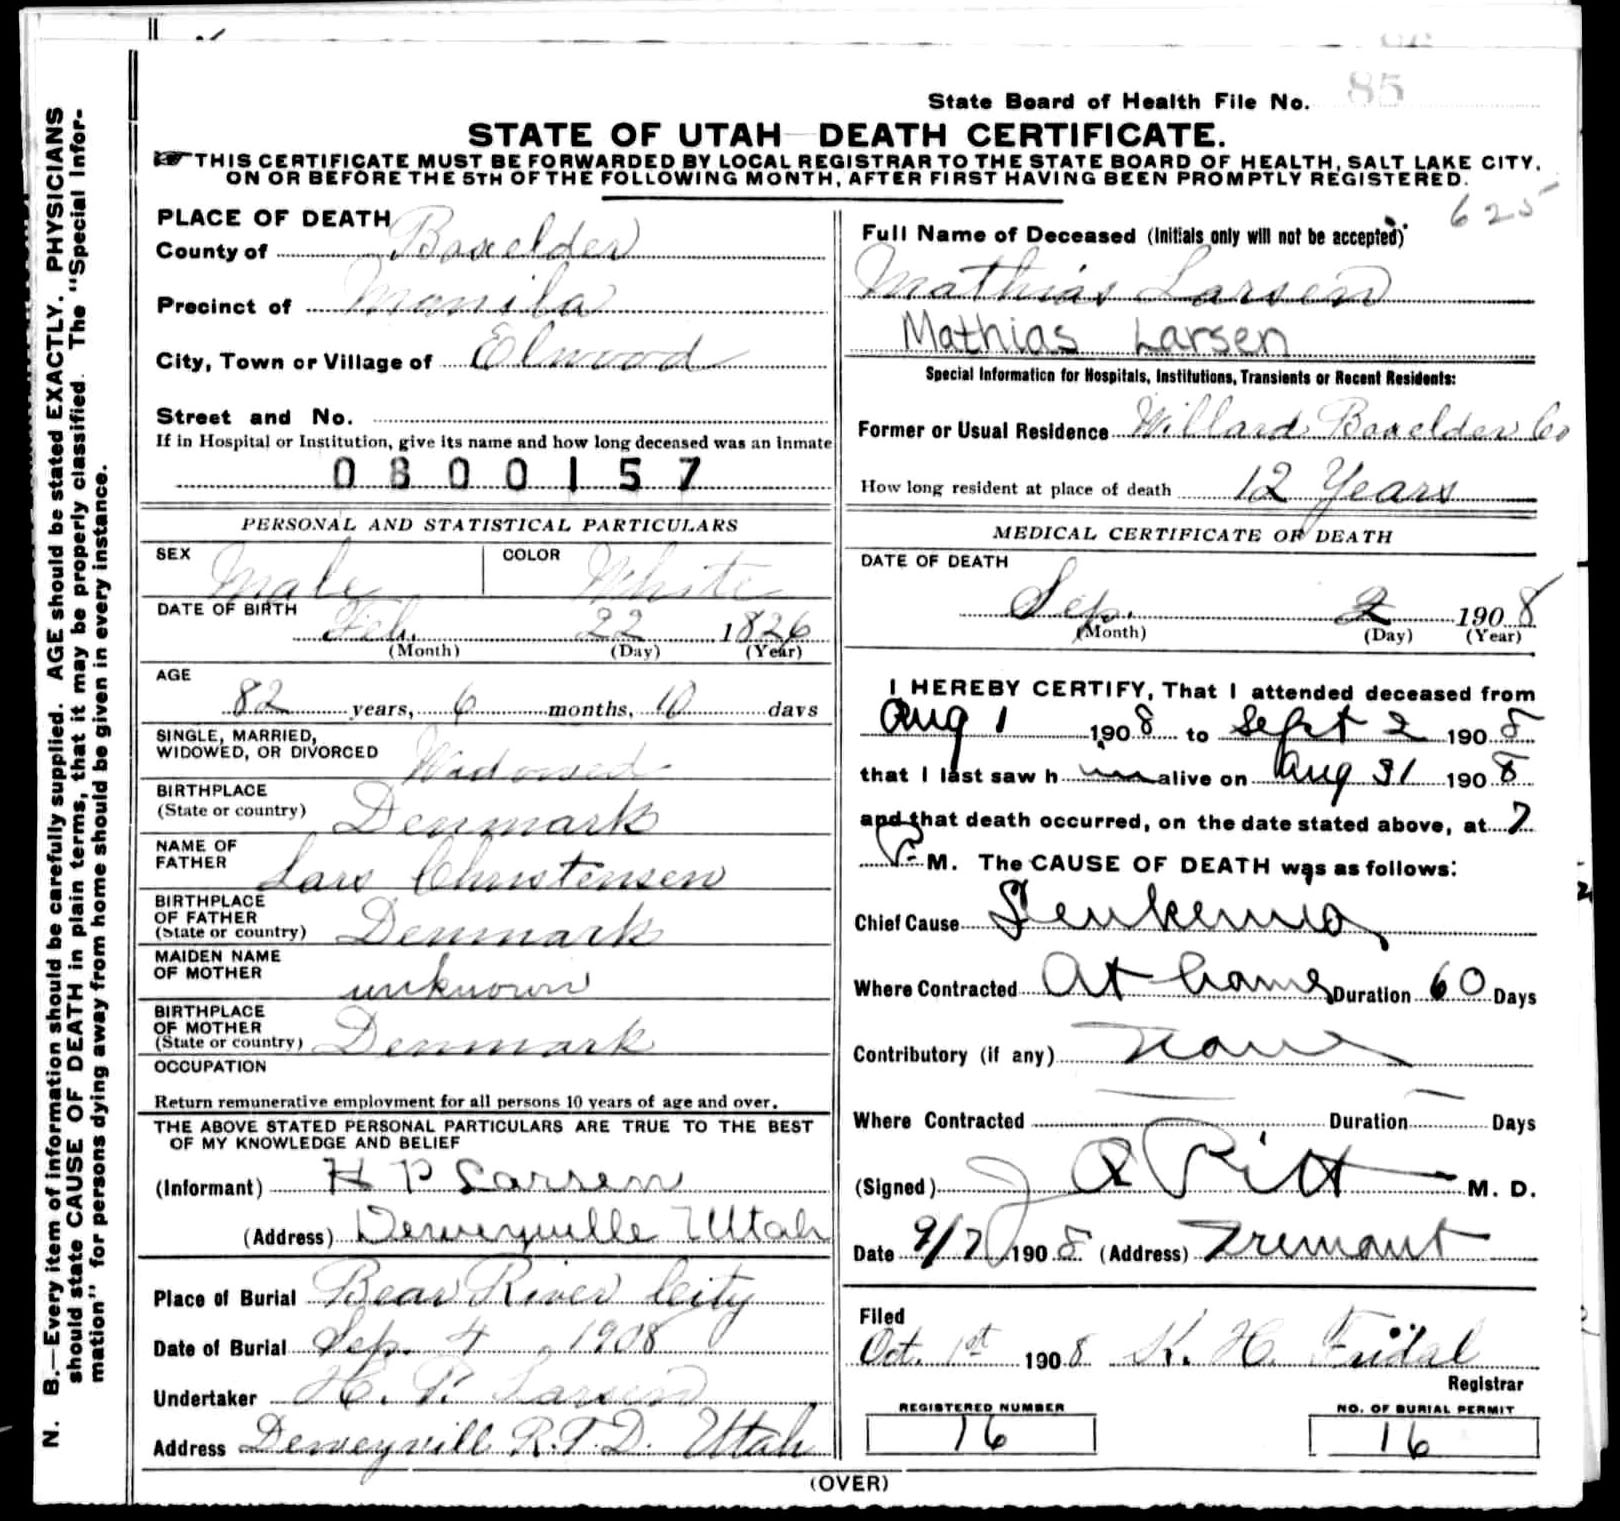 85
State Board of Health File No.
STATE OF UTAH—DEATH CERTIFICATE.
THIS CERTIFICATE MUST BE FORWARDED BY LOCAL REGISTRAR TO THE STATE BOARD OF HEALTH, SALT LAKE CITY,
ON OR BEFORE THE 5TH OF THE FOLLOWING MONTH, AFTER FIRST HAVING BEEN PROMPTLY REGISTERED.
625
N. B.—Every item of information should be carefully supplied. AGE should be stated EXACTLY. PHYSICIANS
should state CAUSE OF DEATH in plain terms, that it may be properly classified. The "Special Infor-
mation" for persons dying away from home should be given in every instance.
PLACE OF DEATH
County of Boxelder
Precinct of Manila
City, Town or Village of Elwood
Street and No.
If in Hospital or Institution, give its name and how long deceased was an inmate
0800157
PERSONAL AND STATISTICAL PARTICULARS
SEX Male COLOR White
DATE OF BIRTH
Feb. 22 1826
(Month) (Day) (Year)
AGE
82 years, 6 months, 10 days
SINGLE, MARRIED,
WIDOWED, OR DIVORCED Widowed
BIRTHPLACE
(State or country) Denmark
NAME OF
FATHER Lars Christensen
BIRTHPLACE
OF FATHER
(State or country) Denmark
MAIDEN NAME
OF MOTHER unknown
BIRTHPLACE
OF MOTHER
(State or country) Denmark
OCCUPATION
Return remunerative employment for all persons 10 years of age and over.
THE ABOVE STATED PERSONAL PARTICULARS ARE TRUE TO THE BEST
OF MY KNOWLEDGE AND BELIEF
(Informant) H P Larsen
(Address) Deweyville Utah
Place of Burial Bear River City
Date of Burial Sep. 4, 1908
Undertaker H. P. Larsen
Address Deweyvill R.F.D. Utah
Full Name of Deceased (Initials only will not be accepted)
Mathias Larsen
Mathias Larsen
Special Information for Hospitals, Institutions, Transients or Recent Residents:
Former or Usual Residence Willard Boxelder Co
How long resident at place of death 12 Years
MEDICAL CERTIFICATE OF DEATH
DATE OF DEATH
Sep. 2 1908
(Month) (Day) (Year)
I HEREBY CERTIFY, That I attended deceased from
Aug 1 1908 to Sept 2 1908
that I last saw him alive on Aug 31 1908
and that death occurred, on the date stated above, at 7
P. M. The CAUSE OF DEATH was as follows:
Chief Cause Leukemia
Where Contracted At home Duration 60 Days
Contributory (if any) None
Where Contracted Duration Days
(Signed) J A Pitt M. D.
Date 9/7 1908 (Address) Tremont
Filed
Oct. 1st 1908 K. H. Fridal
Registrar
REGISTERED NUMBER NO. OF BURIAL PERMIT
16 16
(OVER)